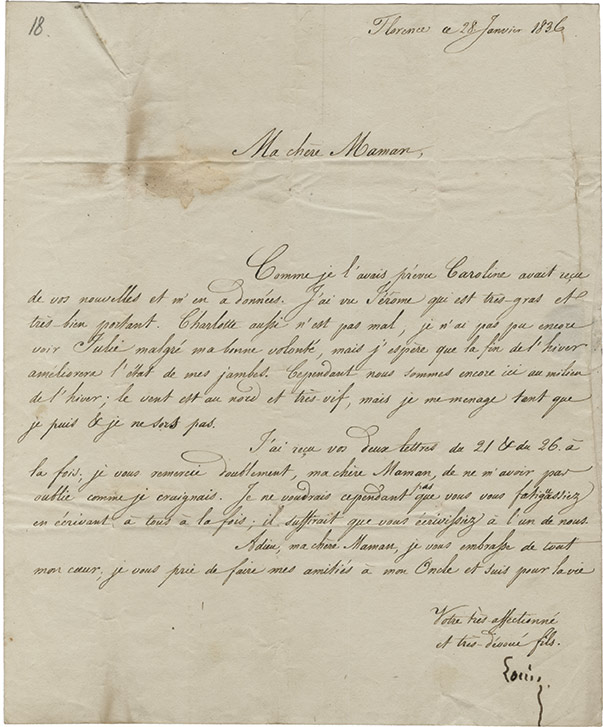 18.
Florence ce 28 Janvier 1836
Ma chère Maman,
Comme je l'avais prévu Caroline avait reçu
de vos nouvelles et m'en a données. J'ai vu Jérome qui est très-gras et
très bien portant. Charlotte aussi n'est pas mal, je n'ai pas pu encore
voir Julie malgré ma bonne volonté, mais j'espère que la fin de l'hiver
améliorera l'état de mes jambes. Cependant nous sommes encore ici au milieu
de l'hiver; le vent est au nord et très vif, mais je me menage tant que
je puis & je ne sors pas.
J'ai reçu vos deux lettres du 21 & du 26. à
la fois; je vous remercie doublement, ma chère Maman, de ne m'avoir pas
oublié comme je craignais. Je ne voudrais cependant pas que vous vous fatiguassiez
en écrivant à tous à la fois; il suffirait que vous écrivissiez à l'un de nous.
Adieu, ma chère Maman, je vous embrasse de tout
mon cœur, je vous prie de faire mes amitiés à mon Oncle et suis pour la vie
Votre très-affectionné
et très-dévoué fils.
Louis